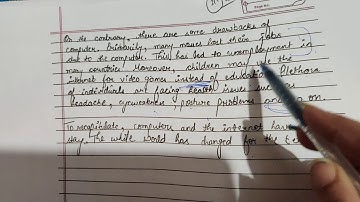 On the contrary, there are some drawbacks of
computer. Primarily, many masses lost their jobs
due to the computer. This has led to unemployment in
many countries. Moreover, children may use the
internet for video games instead of education. Plethora
of individuals are facing health issues such as
headache, eyeweakness, posture problems and so on.
To recapitulate, computers and the internet have
stay. The whole world has changed for the